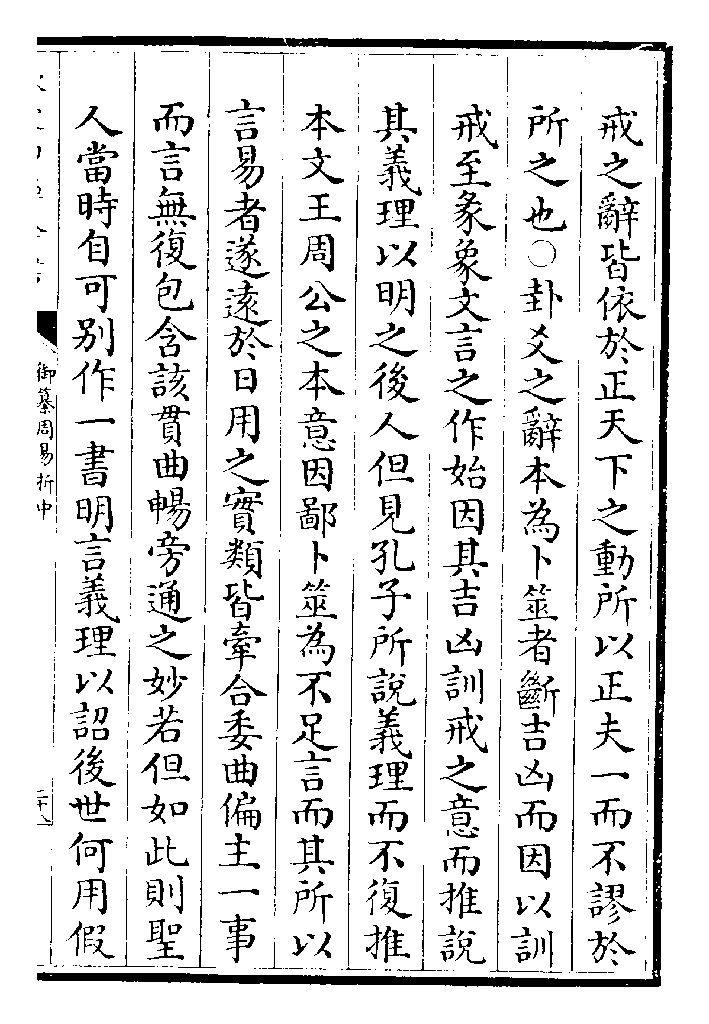 戒之辭皆依於正天下之動所以正夫一而不謬於
所之也○卦爻之辭本為卜筮者斷吉凶而因以訓
戒至彖象文言之作始因其吉凶訓戒之意而推說
其義理以明之後人但見孔子所說義理而不復推
本文王周公之本意因鄙卜筮為不足言而其所以
言易者遂逺於日用之實類皆牽合委曲偏主一事
而言無復包含該貫曲暢旁通之妙若但如此則聖
人當時自可别作一書明言義理以詔後世何用假
御纂周易折中